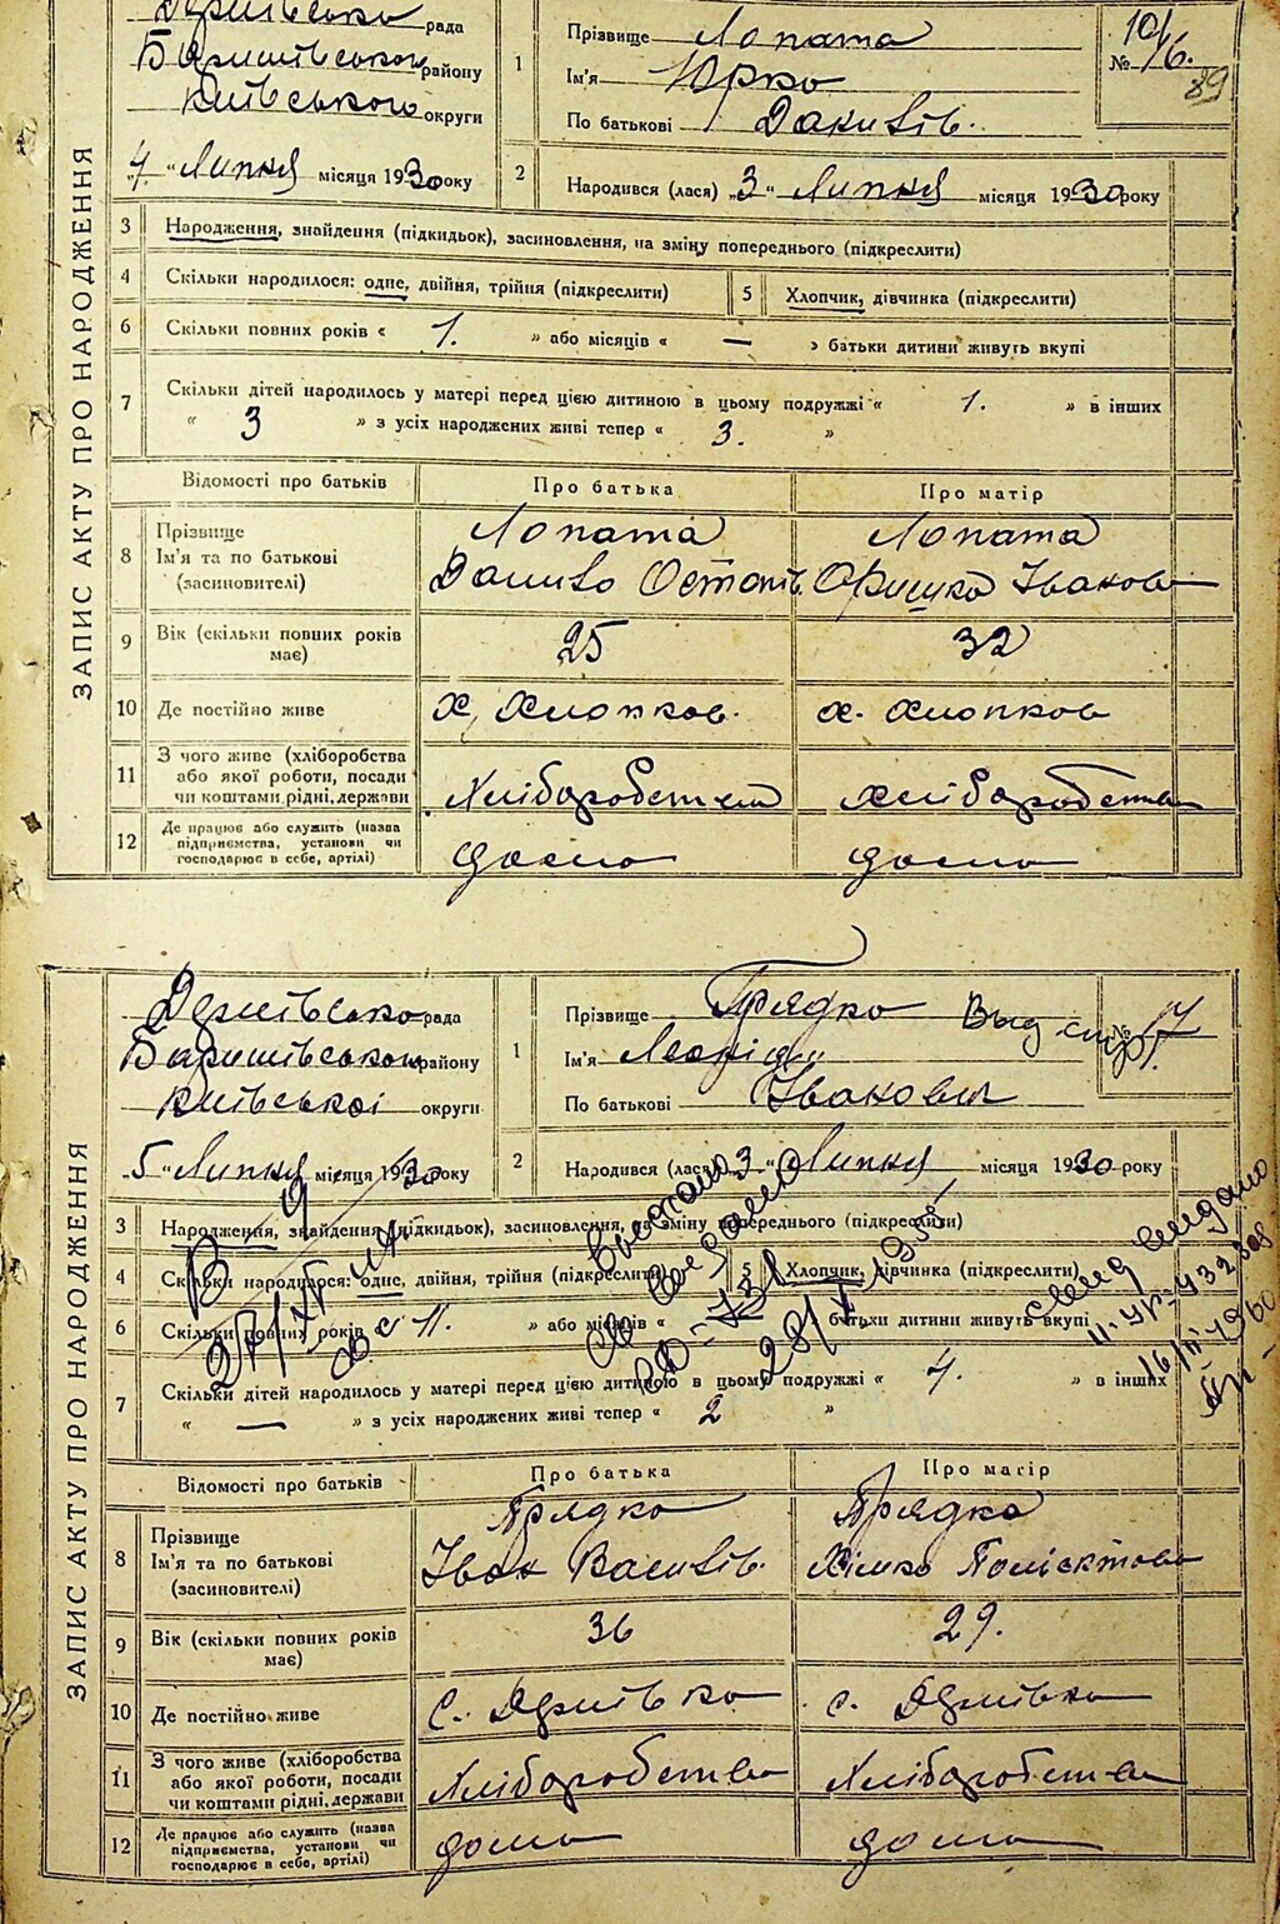 ЗАПИС АКТУ ПРО НАРОДЖЕННЯ
рада
Баришівського району
Київського округи
"4" Липня місяця 1930 року
1 Прізвище Лопата
Ім'я Юрко
По батькові Данилів.
№ 16.
89
2 Народився (лася) „3" Липня місяця 1930 року
3 Народження, знайдення (підкидьок), засиновлення, на зміну попереднього (підкреслити)
4 Скільки народилося: одне, двійня, трійня (підкреслити)
5 Хлопчик, дівчинка (підкреслити)
6 Скільки повних років « 1. » або місяців « — » батьки дитини живуть вкупі
7 Скільки дітей народилось у матері перед цією дитиною в цьому подружжі « 1. » в інших
« 3 » з усіх народжених живі тепер « 3. »
Відомості про батьків Про батька Про матір
8 Прізвище
Ім'я та по батькові
(засиновителі)
Лопата
Данило Остапів.
Лопата
Оришка Іванова
9 Вік (скільки повних років має) 25 32
10 Де постійно живе х. Хлопков. х. Хлопков
11 З чого живе (хліборобства
або якої роботи, посади
чи коштами рідні, держави
Хліборобством Хліборобства
12 Де працює або служить (назва
підприємства, установи чи
господарює в себе, артілі)
дома дома
ЗАПИС АКТУ ПРО НАРОДЖЕННЯ
рада
Баришівського району
Київської округи
„5" Липня місяця 1930 року
1 Прізвище Прядко
Ім'я Леонід
По батькові Іванович
№ 17.
2 Народився (лася) „3" Липня місяця 1930 року
3 Народження, знайдення (підкидьок), засиновлення, на зміну попереднього (підкреслити)
4 Скільки народилося: одне, двійня, трійня (підкреслити)
5 Хлопчик, дівчинка (підкреслити)
6 Скільки повних років « 11. » або місяців « » батьки дитини живуть вкупі
7 Скільки дітей народилось у матері перед цією дитиною в цьому подружжі « 4. » в інших
« — » з усіх народжених живі тепер « 2 »
Відомості про батьків Про батька Про матір
8 Прізвище
Ім'я та по батькові
(засиновителі)
Прядко
Іван Василів.
Прядка
Хімка Поліектова
9 Вік (скільки повних років має) 36 29.
10 Де постійно живе с. Дернівка с. Дернівка
11 З чого живе (хліборобства
або якої роботи, посади
чи коштами рідні, держави
Хліборобства Хліборобства
12 Де працює або служить (назва
підприємства, установи чи
господарює в себе, артілі)
дома дома